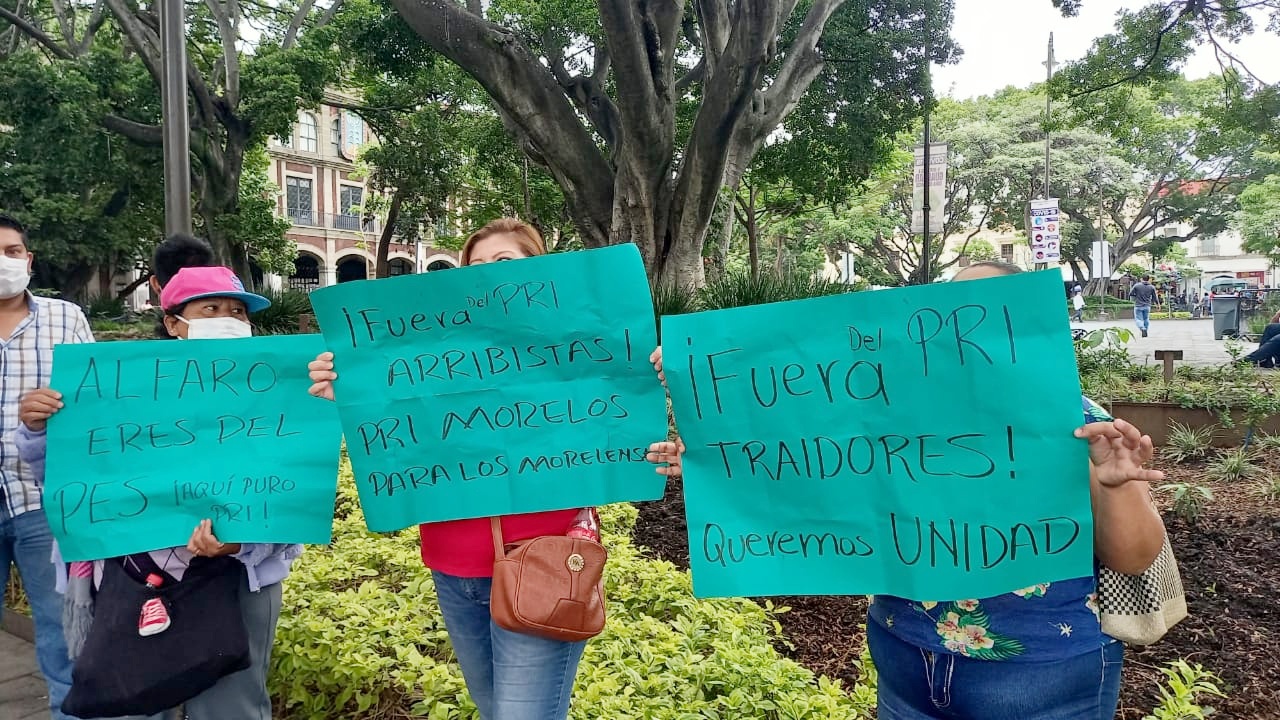 ALFARO
ERES DEL
PES ¡AQUÍ PURO
PRI!
¡Fuera Del PRI
ARRIBISTAS!
PRI MORELOS
PARA LOS MORELENSES
¡Fuera Del PRI
TRAIDORES!
Queremos UNIDAD